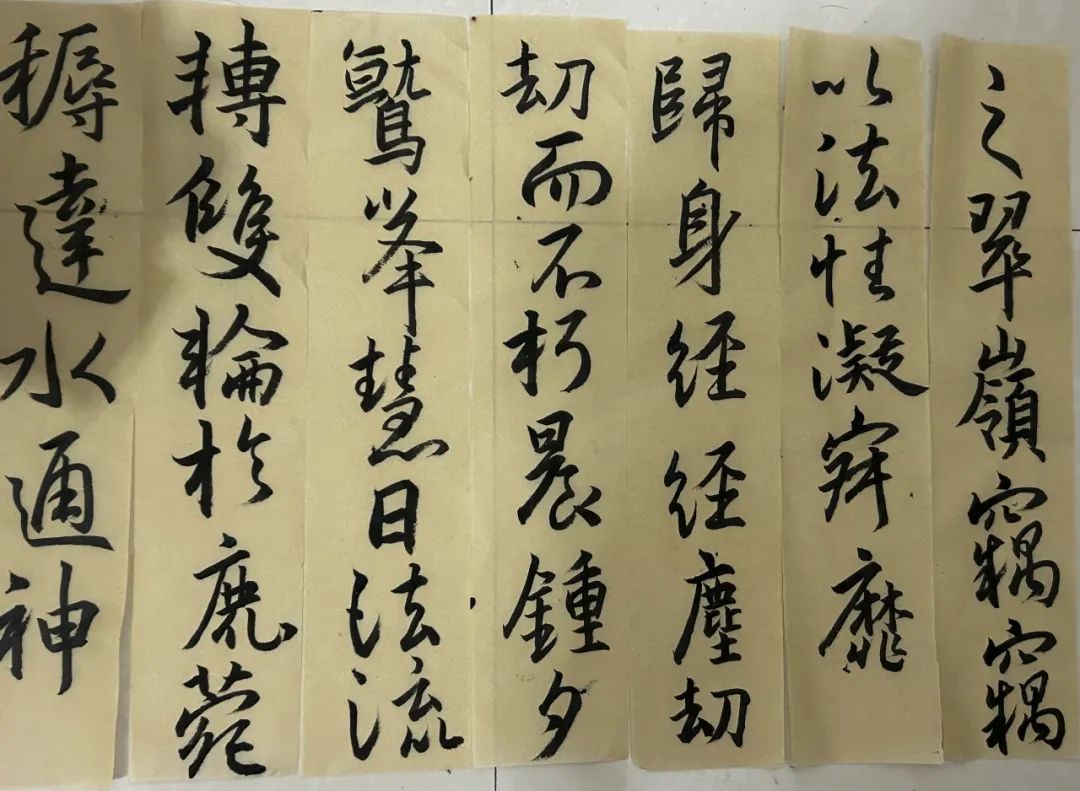 之翠嶺竊竊
以法性凝寂靡
歸身經經塵劫
劫而不朽晨鍾夕
鷲峯慧日法流
轉雙輪於鹿菀
耨達水通神